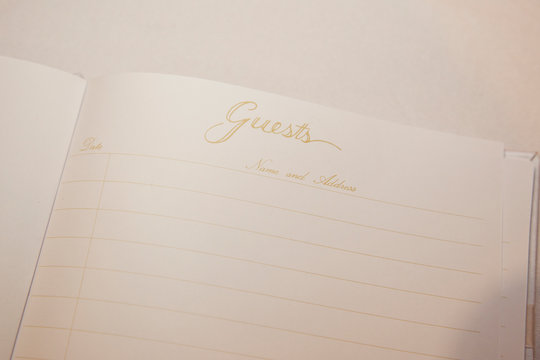 Guests
Date
Name and Address